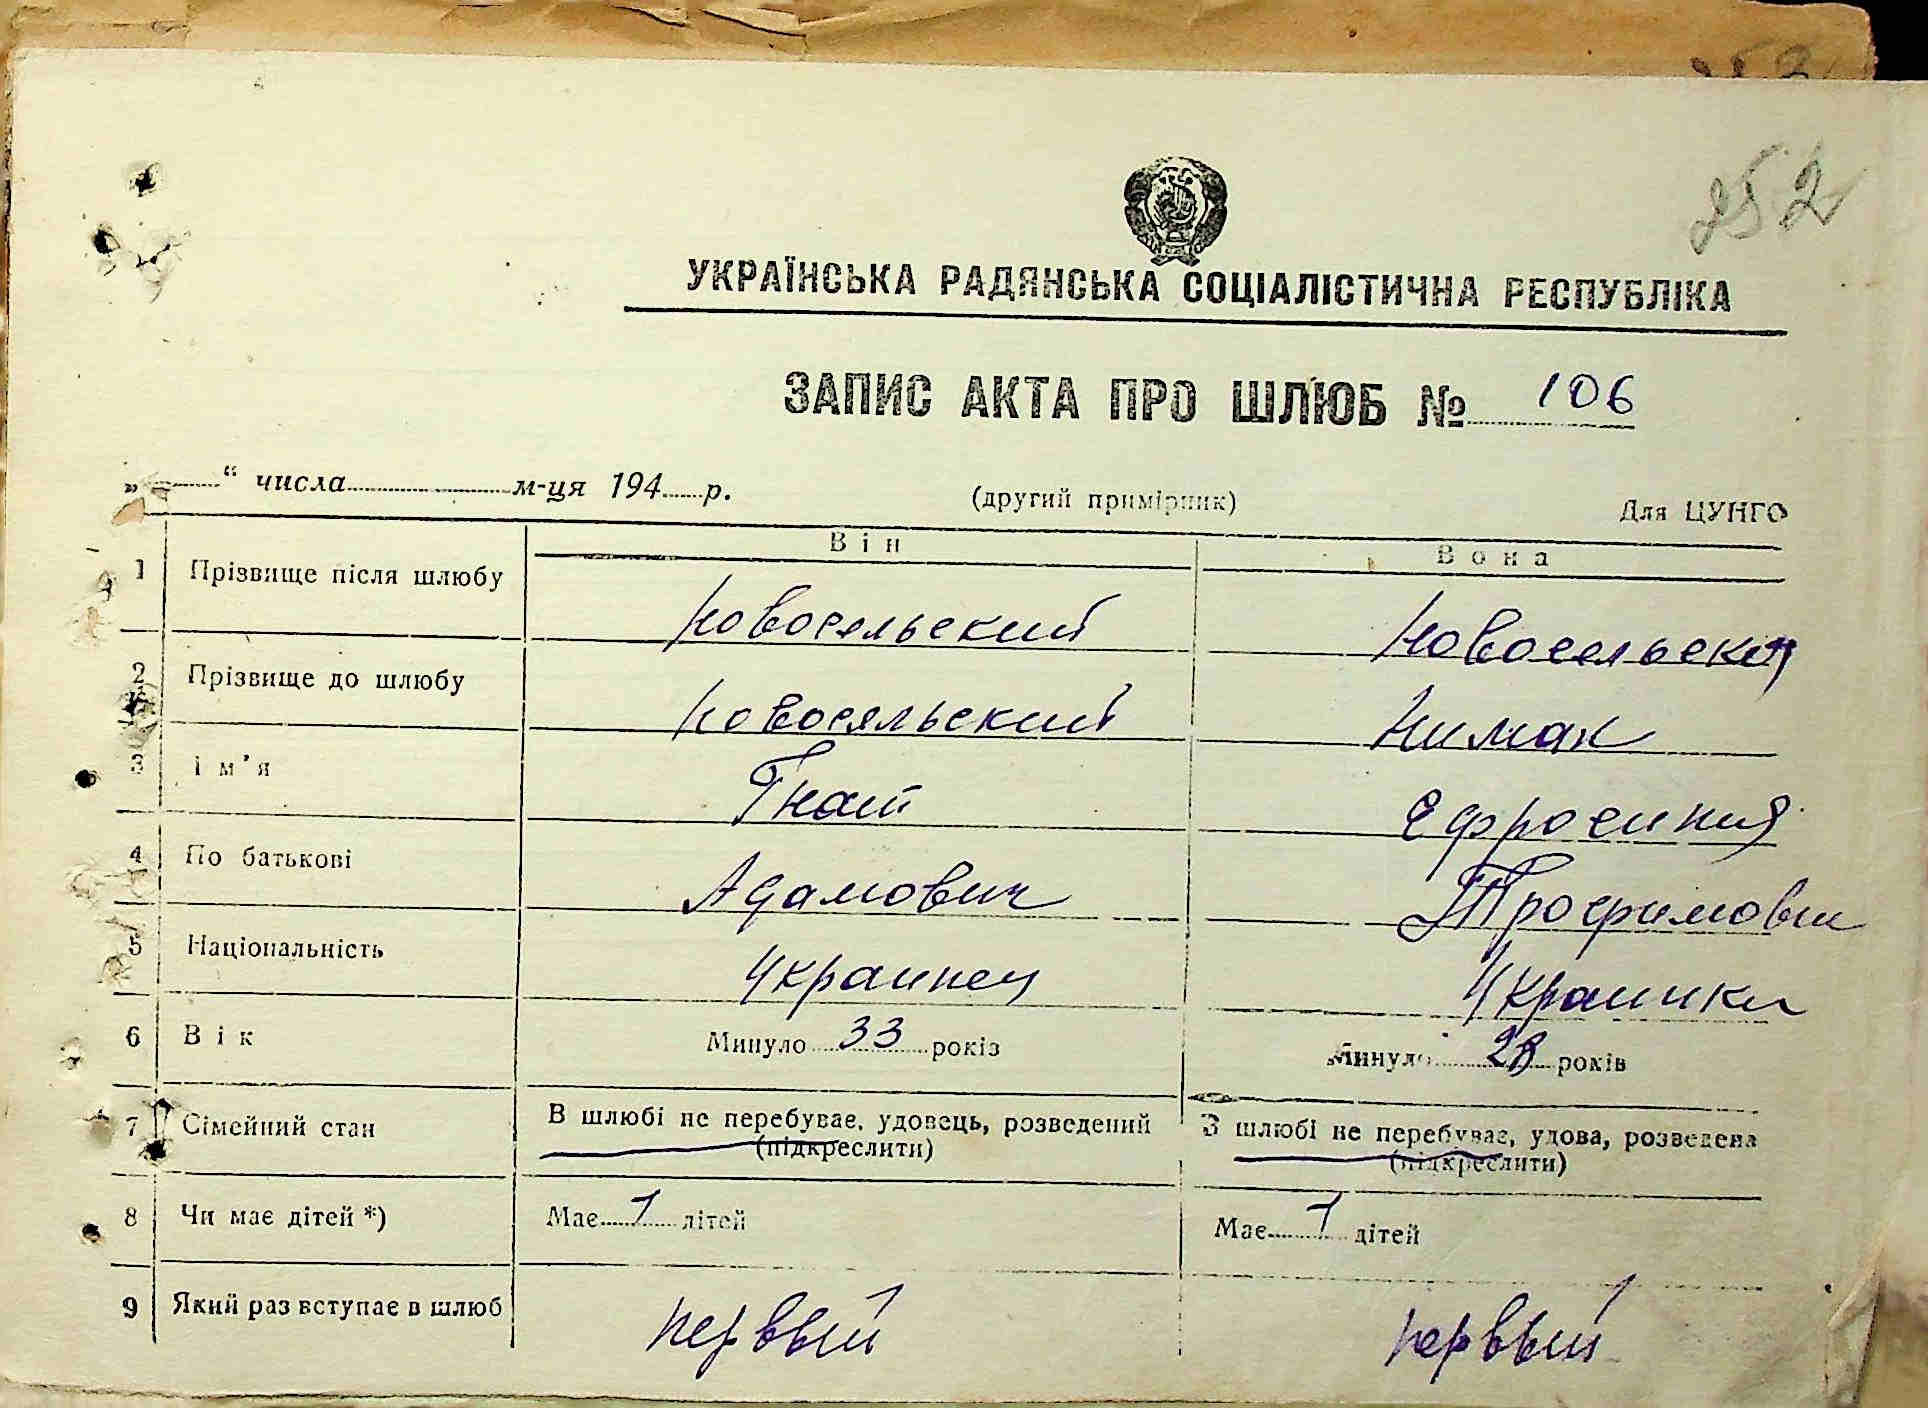 252
УКРАЇНСЬКА РАДЯНСЬКА СОЦІАЛІСТИЧНА РЕСПУБЛІКА
ЗАПИС АКТА ПРО ШЛЮБ № 106
„ “ числа м-ця 194 р.
(другий примірник)
Для ЦУНГО
Він Вона
1 Прізвище після шлюбу Новосельский Новосельская
2 Прізвище до шлюбу Новосяльский Нимак
3 Ім’я Гнат Ефросиния
4 По батькові Адамович Трофимовн
5 Національність Украинец Украинка
6 Вік Минуло 33 років Минуло 28 років
7 Сімейний стан В шлюбі не перебуває, удовець, розведений З шлюбі не перебуває, удова, розведена
(підкреслити) (підкреслити)
8 Чи має дітей *) Має 1 дітей Має 1 дітей
9 Який раз вступає в шлюб первый первый